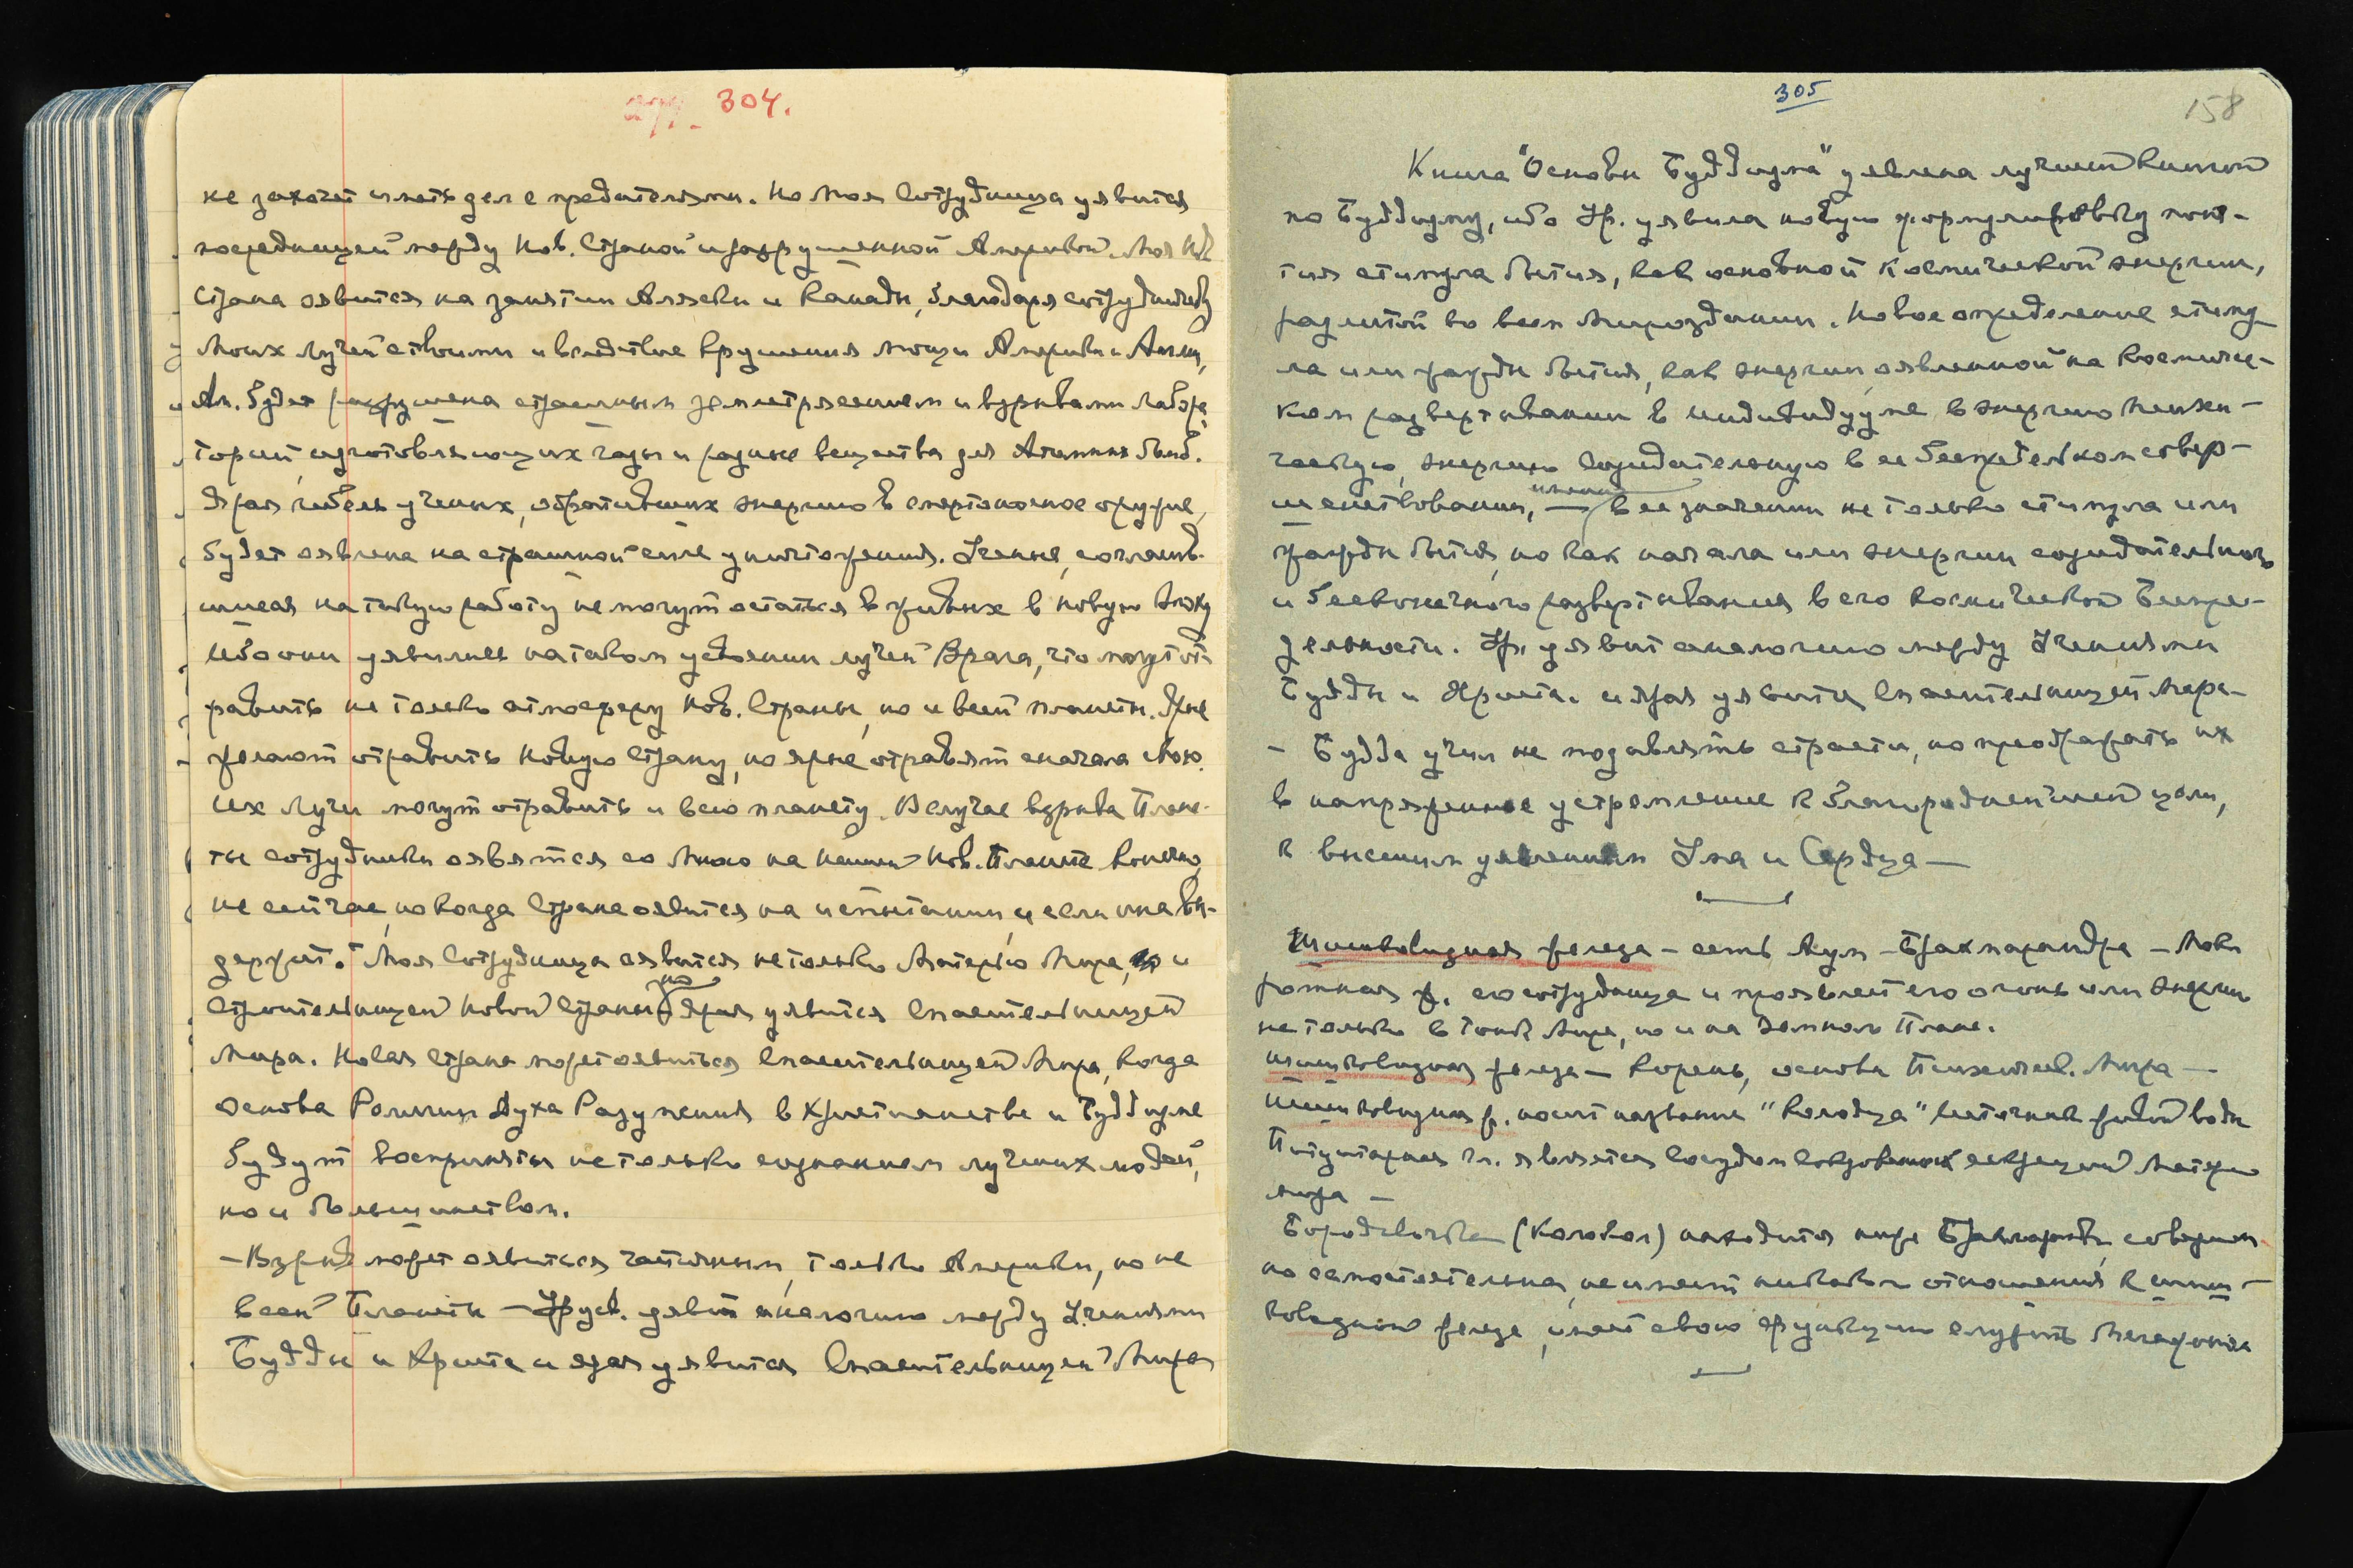 стр. 304.
не захочет иметь дел с предателями. Но моя Сотрудница уявится
посредницей между Нов. Страной и разрушенной Америкой. Моя Нов.
Страна оявится на занятии Аляски и Канады, благодаря сотрудничеству
Моих лучей с твоими и вследствие крушения мощи Америки и Англии,
Ам. будет разрушена страшным землетрясением и взрывами лабора
торий, изготовляющих газы и разные вещества для Атомных бомб.
Ярая гибель ученых, обративших энергию в смертоносное оружие,
будет оявлена на страшной силе уничтожения. Ученые, согласив-
шиеся на такую работу не могут остаться в живых в новую эпоху
Ибо они уявились на таком усвоении лучей Врага, что могут от-
равить не только атмосферу Нов. Страны, но и всей планеты. Ярые
желают отравить Новую Страну, но ярые отравят сначала свою.
Их лучи могут отравить и всю планету. В случае взрыва Плане-
ты сотрудники оявятся со Мною на нашей Нов. Планете конечно,
не сейчас, но когда Страна оявится на испытании, и если она вы-
держит. Моя Сотрудница оявится не только Матерью Мира, но и
Строительницей Новой Страны, но Ярая уявится Спасительницей
Мира. Новая Страна может оявиться Спасительницей Мира, когда
основа Религии Духа Разумения в Христианстве и Буддизме
будут восприняты не только сознанием лучших людей,
но и большинством.
– Взрыв может оявиться частичным, только Америки, но не
всей Планеты – Урусв. уявит аналогию между Учениями
Будды и Христа и ярая уявится Спасительницей Мира
305
158
Книга "Основы Буддизма" уявлена лучшей книгой
по Буддизму, ибо Ур. уявила новую формулировку поня-
тия стимула бытия, как основной Космической энергии,
разлитой во всем Мироздании. Новое определение стиму
ла или жажды бытия, как энергии, оявленной на космичес-
ком развертывании в индивидууме в энергию психи-
ческую, энергию созидательную в ее беспредельном совер-
шенствовании, – в ее значении не только стимула или
жажды бытия, но как начала или энергии созидательной
и бесконечного развертывания в его космической Беспре-
дельности. Ур. уявит аналогию между Учениями
Будды и Христа. и ярая уявится Спасительницей Мира –
– Будда учил не подавлять страсти, но преображать их
в напряженное устремление к благороднейшей цели,
к высшим уявлениям Ума и Сердца –
Шишковидная железа – есть Аум – Брахмарандра –
ж. его сотрудница и проявляет его огонь или энергию
не только в Тонк. Мире, но и на Земном Плане.
Шишковидная железа – корень, основа Психическ. Мира –
Шишковидная ж. носит название "Колодца" Источник живой воды
Питуитарная гл. является Сосудом секрецией Матери
Мира –
(Колокол) находится ниже совершен-
но самостоятельна, не имеет никакого отношения к шиш-
ковидной железе, имеет свою функцию служить